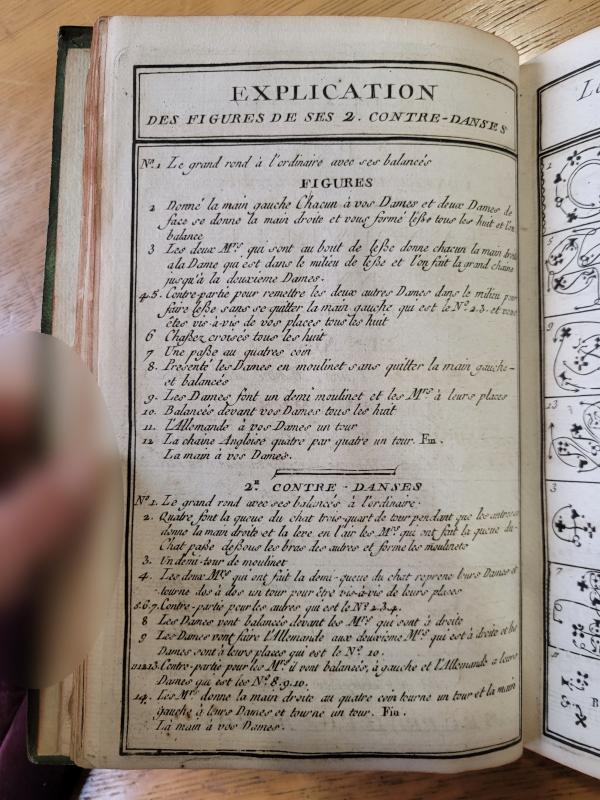 EXPLICATION
DES FIGURES DE SES 2. CONTRE-DANSES
N.º 1 Le grand rond à l'ordinaire avec ses balancés
FIGURES
2 Donné la main gauche Chacun à vos Dames et deux Dames de
face se donne la main droite et vous formé l'eße tous les huit et l'on
balance
3 Les deux M.rs qui sont au bout de l'eße donne chacun la main droite
a la Dame qui est dans le milieu de l'eße et l'on fait la grand chaine
jusqu'à la deuxieme Dames.
4.5. Contre-partie pour remettre les deux autres Dames dans le milieu pour
faire l'eße sans se quitter la main gauche qui est le N.º 2.3. et vous
êtes vis-à-vis de vos places tous les huit
6 Chaßez croisés tous les huit
7 Une paße au quatres coin
8. Présenté les Dames en moulinet sans quitter la main gauche-
et balancés
9. Les Dames font un demi moulinet et les M.rs à leurs places
10. Balancés devant vos Dames tous les huit
11. L'Allemande à vos Dames un tour
12 La chaine Angloise quatre par quatre un tour. Fin.
La main à vos Dames.
2.e CONTRE-DANSES
N.º 1. Le grand rond avec ses balancés à l'ordinaire.
2. Quatre font la queue du chat trois-quart de tour pendant que les autres se
donne la main droite et la leve en l'air les M.rs qui ont fait la queue du-
Chat paße deßous les bras des autres et forme les moulinets
3. Un demi-tour de moulinet
4. Les deux M.rs qui ont fait la demi-queue du chat reprene leurs Dames et
tourne dos à dos un tour pour être vis-à-vis de leurs places
5.6.7. Contre-partie pour les autres qui est le N.º 2.3.4.
8 Les Dames vont balancés devant les M.rs qui sont à droite
9 Les Dames vont faire L'Allemande aux deuxieme M.rs qui est à droite et les
Dames sont à leurs places qui est le N.º 10.
11 12 13. Contre-partie pour les M.rs il vont balancés, à gauche et l'Allemande a leurs
Dames qui est les N.º 8.9.10.
14. Les M.rs donne la main droite au quatre coin tourne un tour et la main
gauche à leurs Dames et tourne un tour. Fin.
La main à vos Dames.
Le
1
5
9
13
3
7
11
B